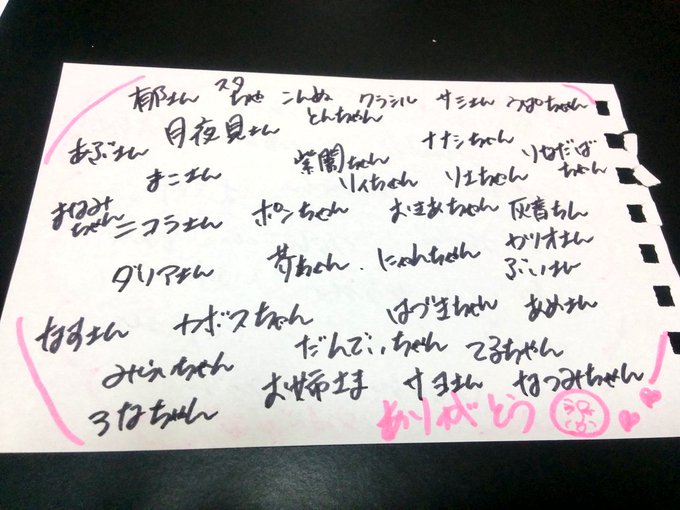 郁さん スタちゃ こんぬ クラシル サミさん うぱちゃん
とんちゃん
あぶさん 月夜見さん ナナシちゃん りなだばちゃん
まこさん 紫闇ちゃん リィちゃん リエちゃん
まなみちゃん ニコラさん ポンちゃん おまあちゃん 灰音ちん
ダリアさん 芥ちゃん にゃんちゃん ガリオさん
ぶいさん
なすさん カボスちゃん はづきちゃん あめさん
みらいちゃん だんでぃちゃん てるちゃん
るなちゃん お姉さま サヨさん なつみちゃん
ありがとう